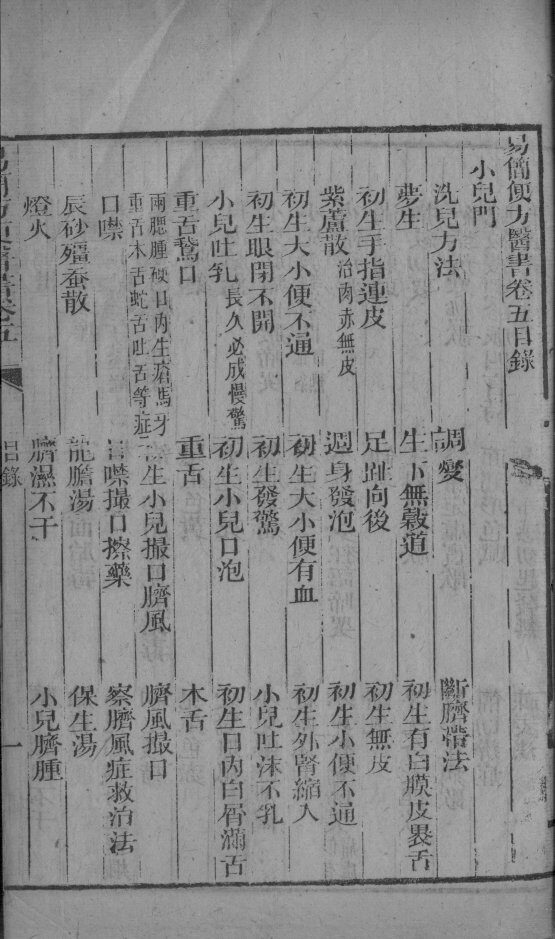 易簡便方醫書卷五目錄
小兒門
洗兒方法　調變　斷臍帶法
夢生　生下無穀道　初生有白膜皮裹舌
初生手指連皮　足趾向後　初生無皮
紫蘆散 治肉赤無皮　週身發泡　初生小便不通
初生大小便不通　初生大小便有血　初生外腎縮入
初生眼閉不開　初生發驚　小兒吐沫不乳
小兒吐乳 長久必成慢驚　初生小兒口泡　初生口內白屑滿舌
重舌鵞口　重舌　木舌
兩腮腫硬口內生瘡馬牙重舌木舌蛇舌吐舌等症　生小兒撮口臍風　臍風撮口
口噤　口噤撮口擦藥　察臍風症救治法
辰砂殭蚕散　龍膽湯　保生湯
燈火　臍濕不干　小兒臍腫
目錄　一